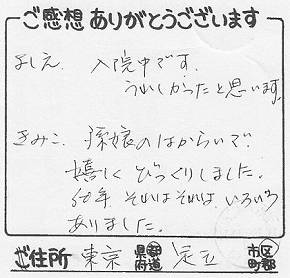 ご感想ありがとうございます
よしえ. 入院中です.
うれしかったと思います.
きみこ. 孫娘のはからいで.
嬉しく びっくりしました.
60年 それはそれは いろいろ
ありました.
ご住所 東京 都道府県 足立 市区町郡